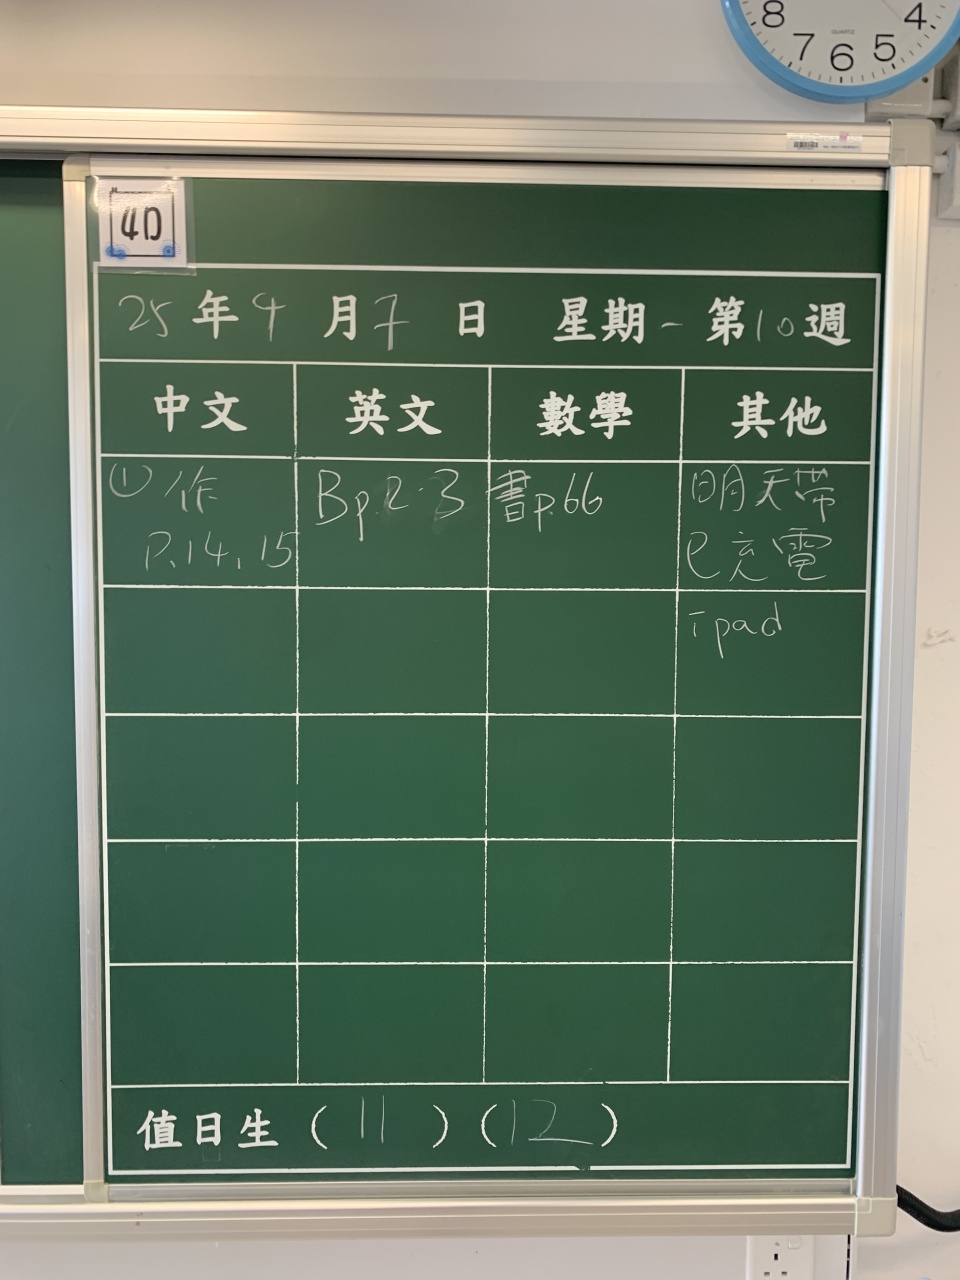 8 7 6 5 4
QUARTZ
4D
25年4月7日 星期一 第10週
中文 英文 數學 其他
①作 Bp.2-3 書p.66 明天帶
P.14,15 已充電
ipad
值日生 (11) (12)